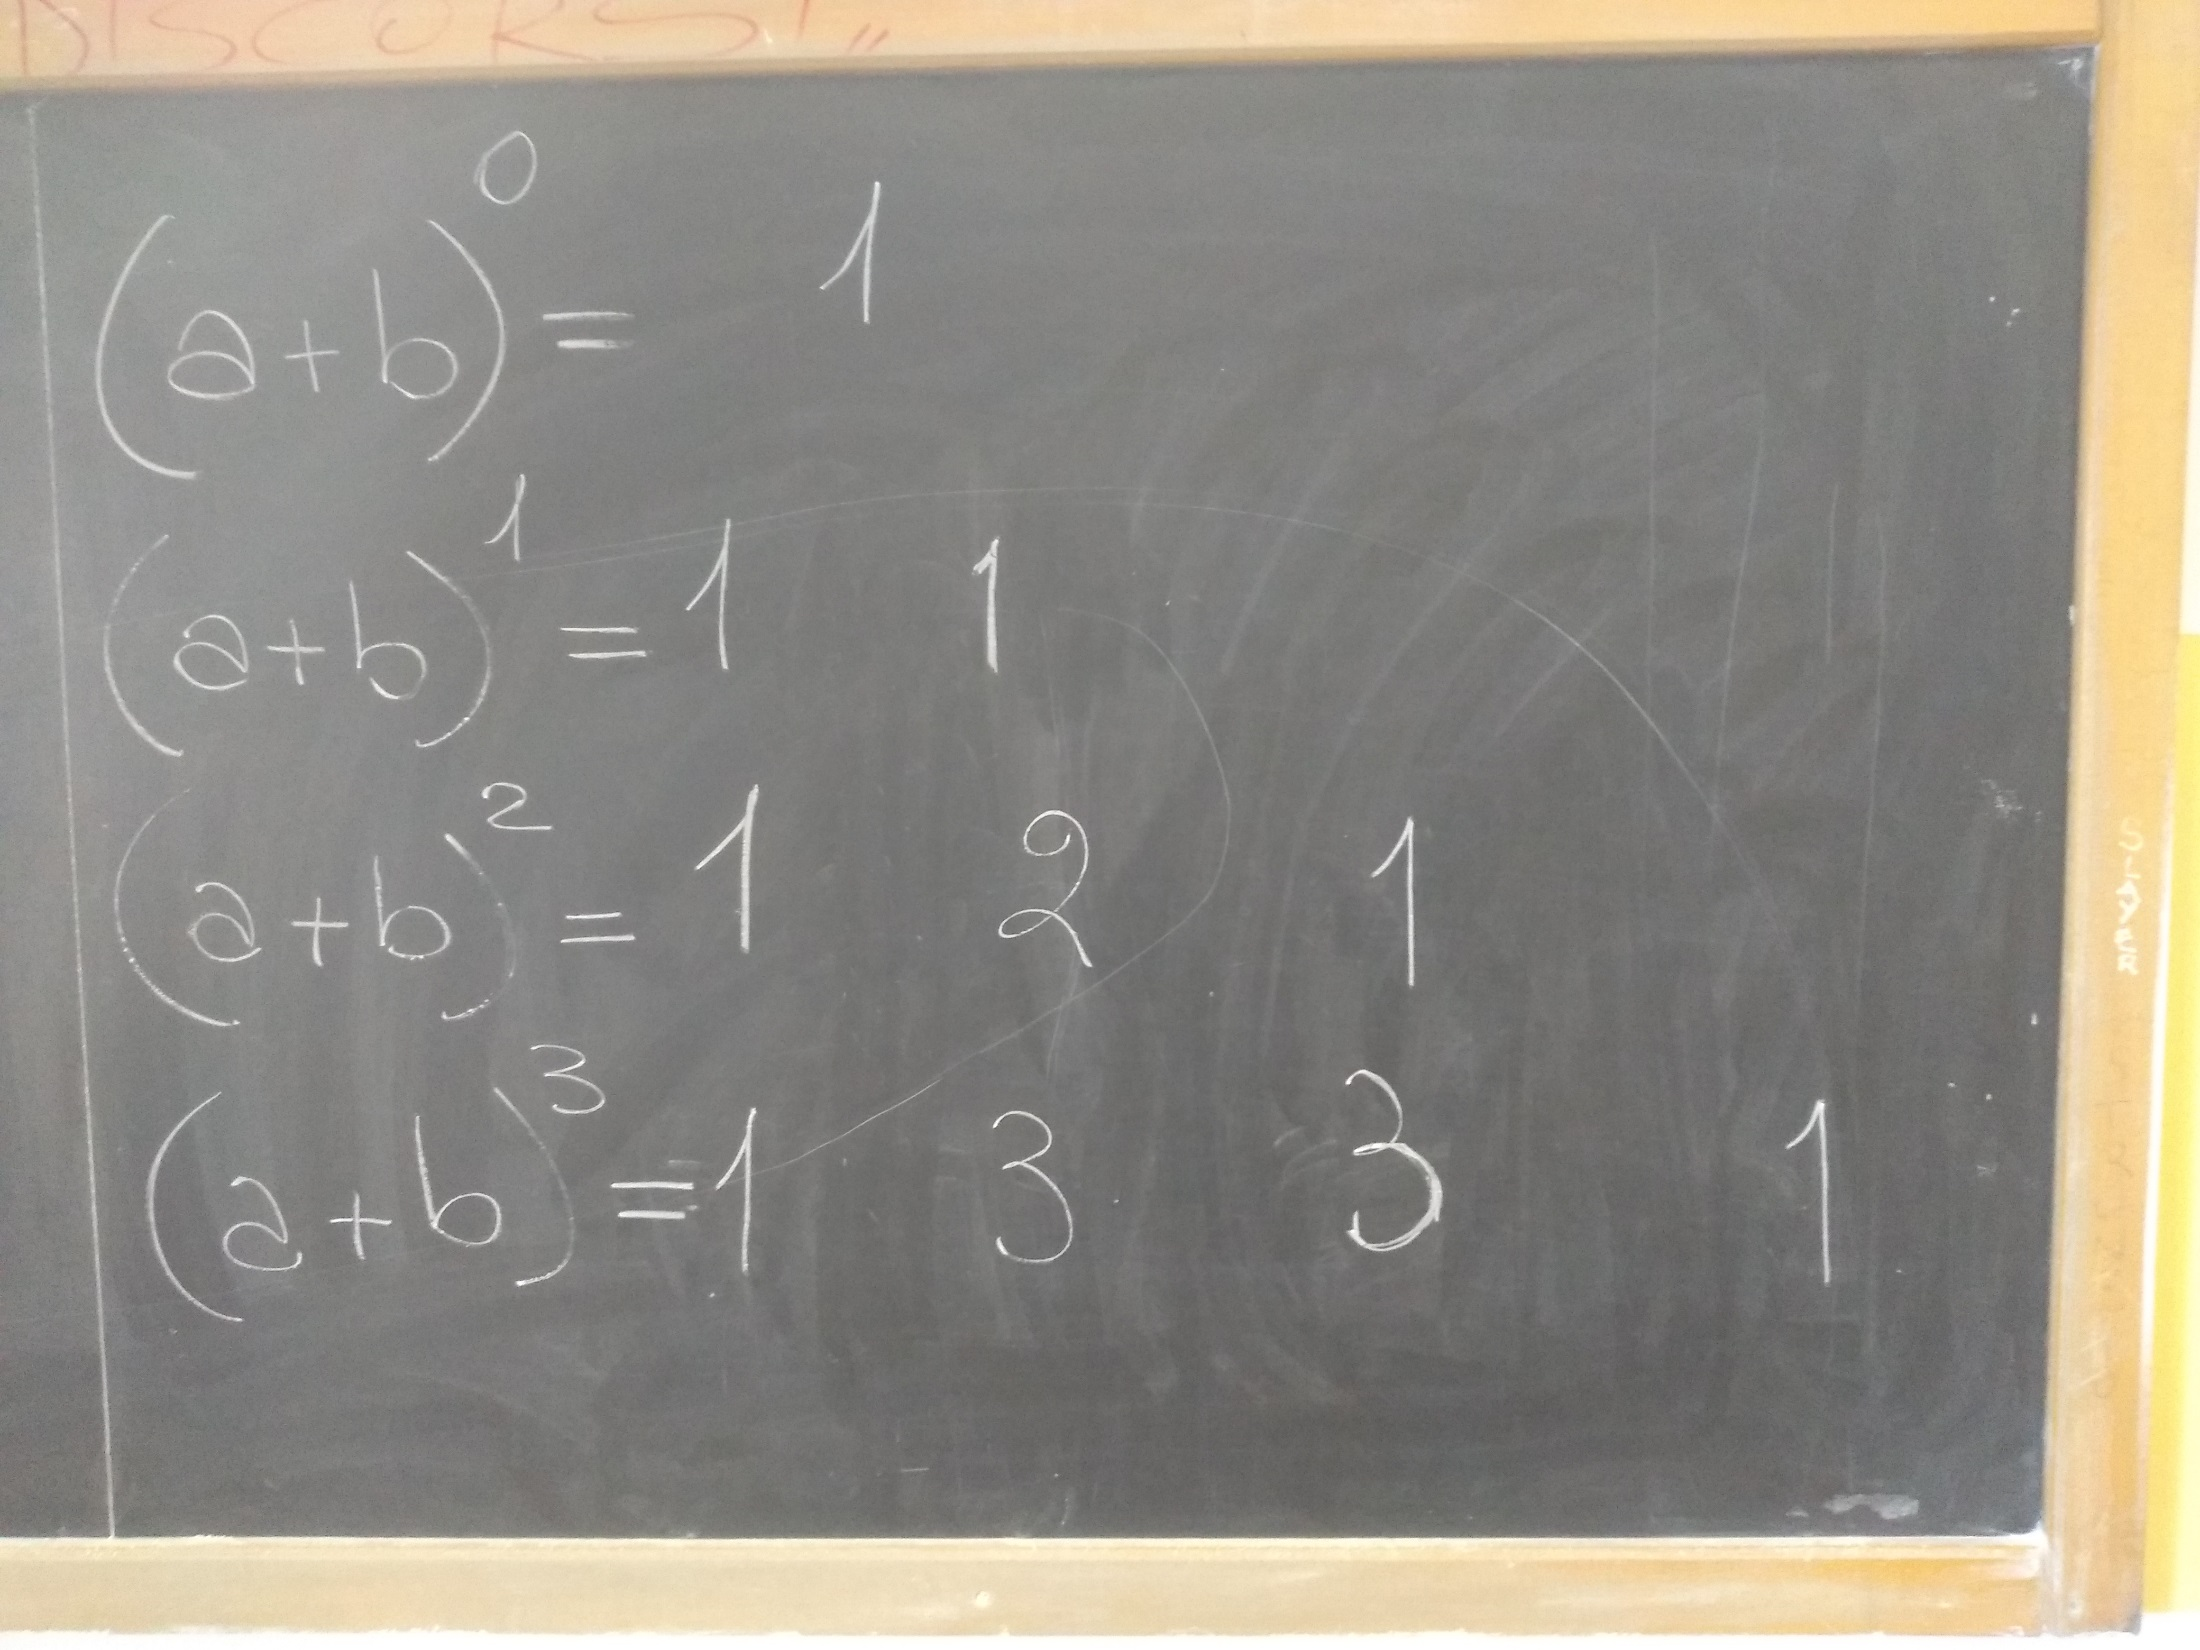 DISCORSI"
(a+b)^0 = 1
(a+b)^1 = 1 1
(a+b)^2 = 1 2 1
(a+b)^3 = 1 3 3 1
SLAYER